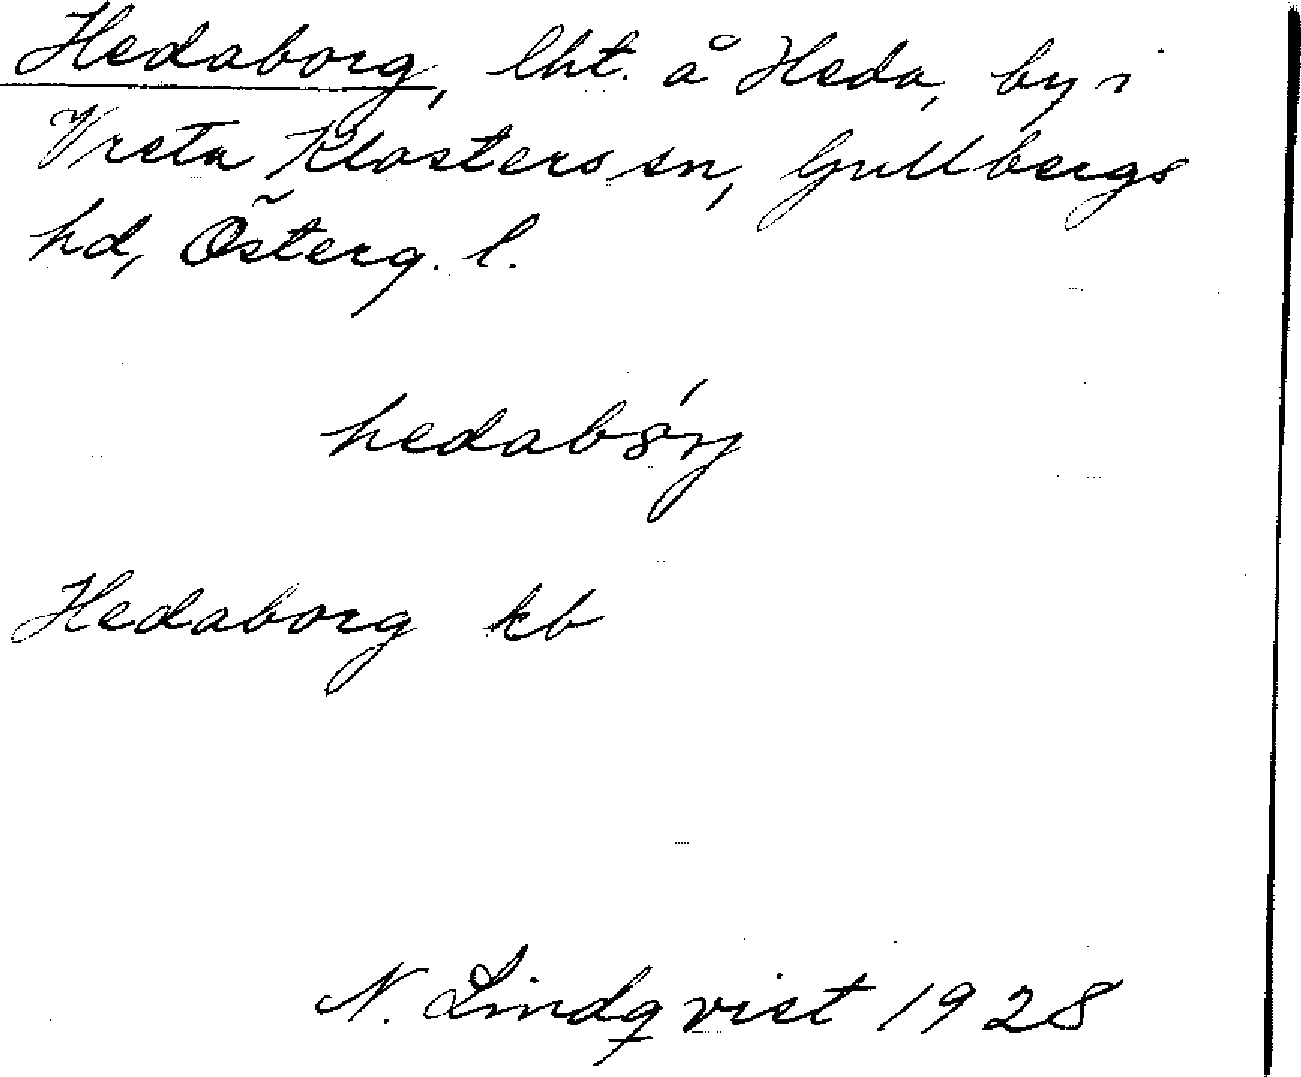 Hedaborg, lht. å Heda, by i
Vreta Klosters sn, Gullbergs
hd, Österg. l.
Hedaborg kb
N. Lindqvist 1928